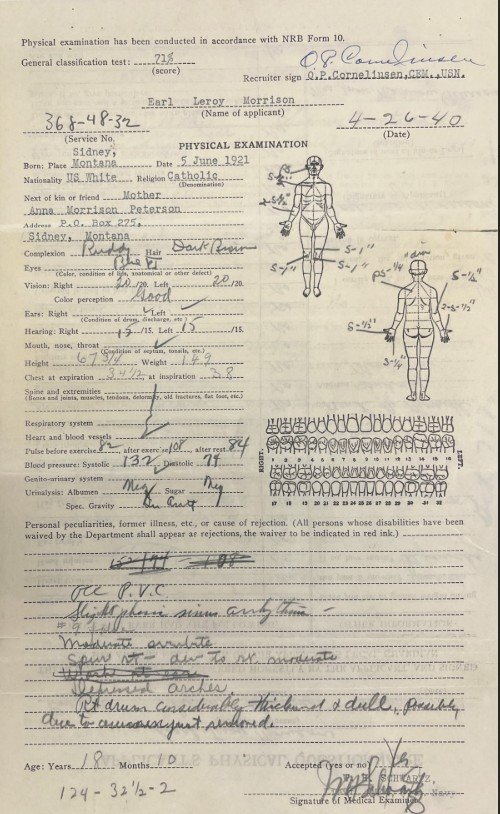 Physical examination has been conducted in accordance with NRB Form 10.
General classification test: 71%
(score)
O.P. Cornelinsen
Recruiter sign O.P.Cornelinsen,CEM.,USN.
Earl Leroy Morrison
(Name of applicant)
368-48-32
(Service No.
4-26-40
(Date)
PHYSICAL EXAMINATION
Sidney,
Born: Place Montana Date 5 June 1921
Nationality US White Religion Catholic
(Denomination)
Next of kin or friend Mother
Anna Morrison Peterson
Address P.O. Box 275,
Sidney, Montana
Complexion Ruddy Hair Dark Brown
Eyes Blue
(Color, condition of lids, anatomical or other defect)
Vision: Right 20/20. Left 20/20.
Color perception Good
Ears: Right Left
(Condition of drum, discharge, etc.)
Hearing: Right 15/15. Left 15/15.
Mouth, nose, throat
(Condition of septum, tonsils, etc.)
Height 67 3/4 Weight 149
Chest at expiration 34 1/2 at inspiration 38
Spine and extremities
(Bones and joints, muscles, tendons, deformity, old fractures, flat foot, etc.)
Respiratory system
Heart and blood vessels
Pulse before exercise 82 after exercise 108 after rest 84
Blood pressure: Systolic 132 Diastolic 74
Genito-urinary system
Urinalysis: Albumen Neg Sugar Neg
Spec. Gravity
S-1"
S-1"
S-1"
PS-1/4"
S-1/2"
2-S-1/2"
S-1/2"
S-1/4"
RIGHT.
LEFT.
1 2 3 4 5 6 7 8 9 10 11 12 13 14 15 16
17 18 19 20 21 22 23 24 25 26 27 28 29 30 31 32
Personal peculiarities, former illness, etc., or cause of rejection. (All persons whose disabilities have been
waived by the Department shall appear as rejections, the waiver to be indicated in red ink.)
Occ P.V.C
Slight sinus arrhythmia -
# 9
Moderate overbite
Spur rt - dev to rt. moderate
Depressed arches.
Rt drum considerably thickened & dull, possibly
due to cerumen just removed.
Age: Years 18 Months 10
Accepted (yes or no) Yes
SCHWARTZ,
Navy
Signature of Medical Examiner
124-32 1/2-2